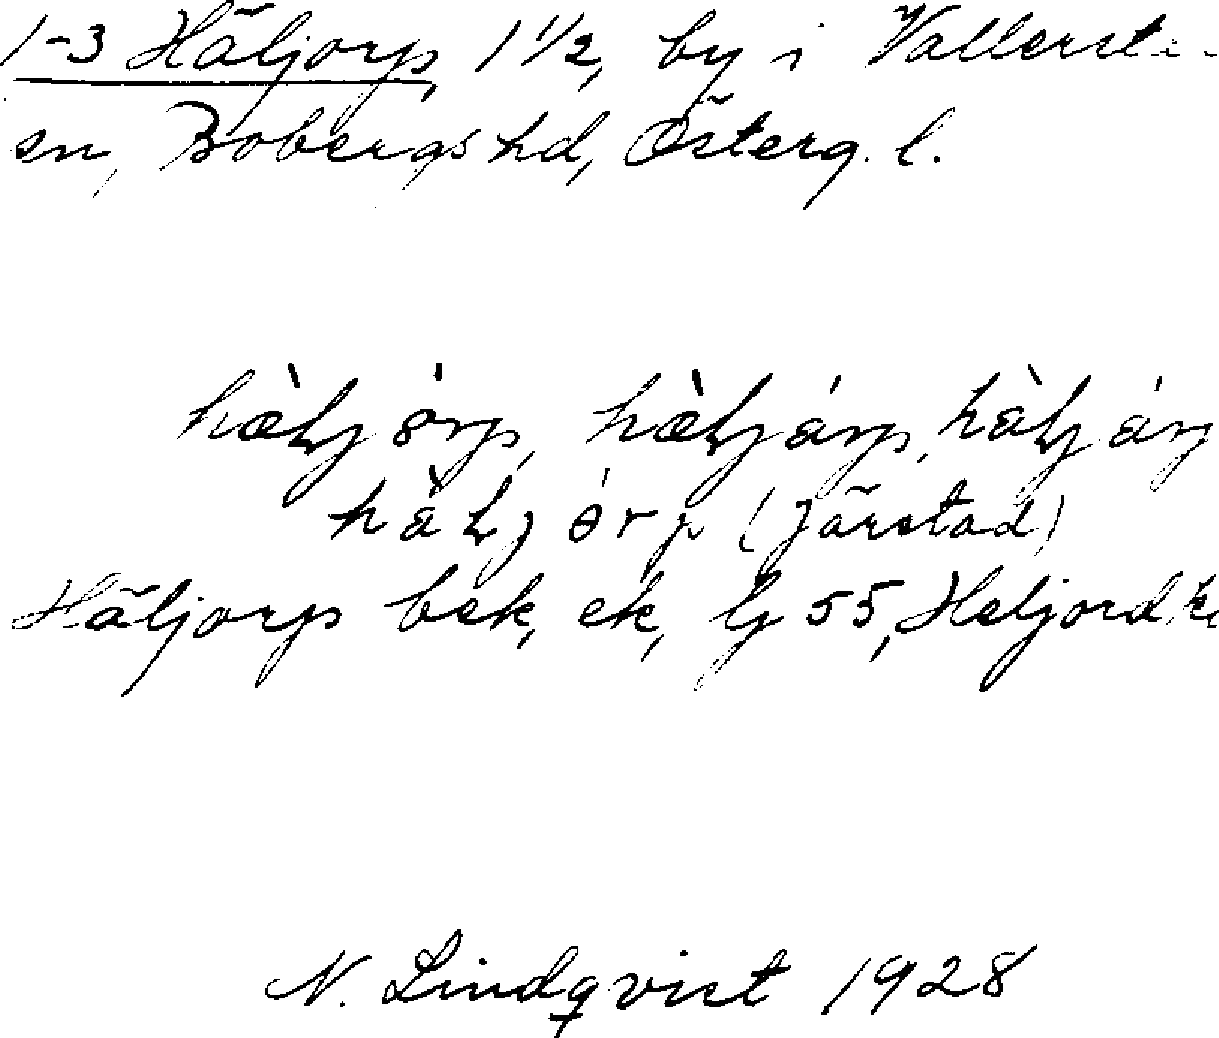 1-3 Häljorp, 1 1/2, by i Vallerst
sn, Bobergs hd, Österg. l.
hæ̀ljórp, hæ̀ljárp, hàljárp
hàljórp (Järstad)
Häljorp bek, ek, lj 55, Heljord k
N. Lindqvist 1928